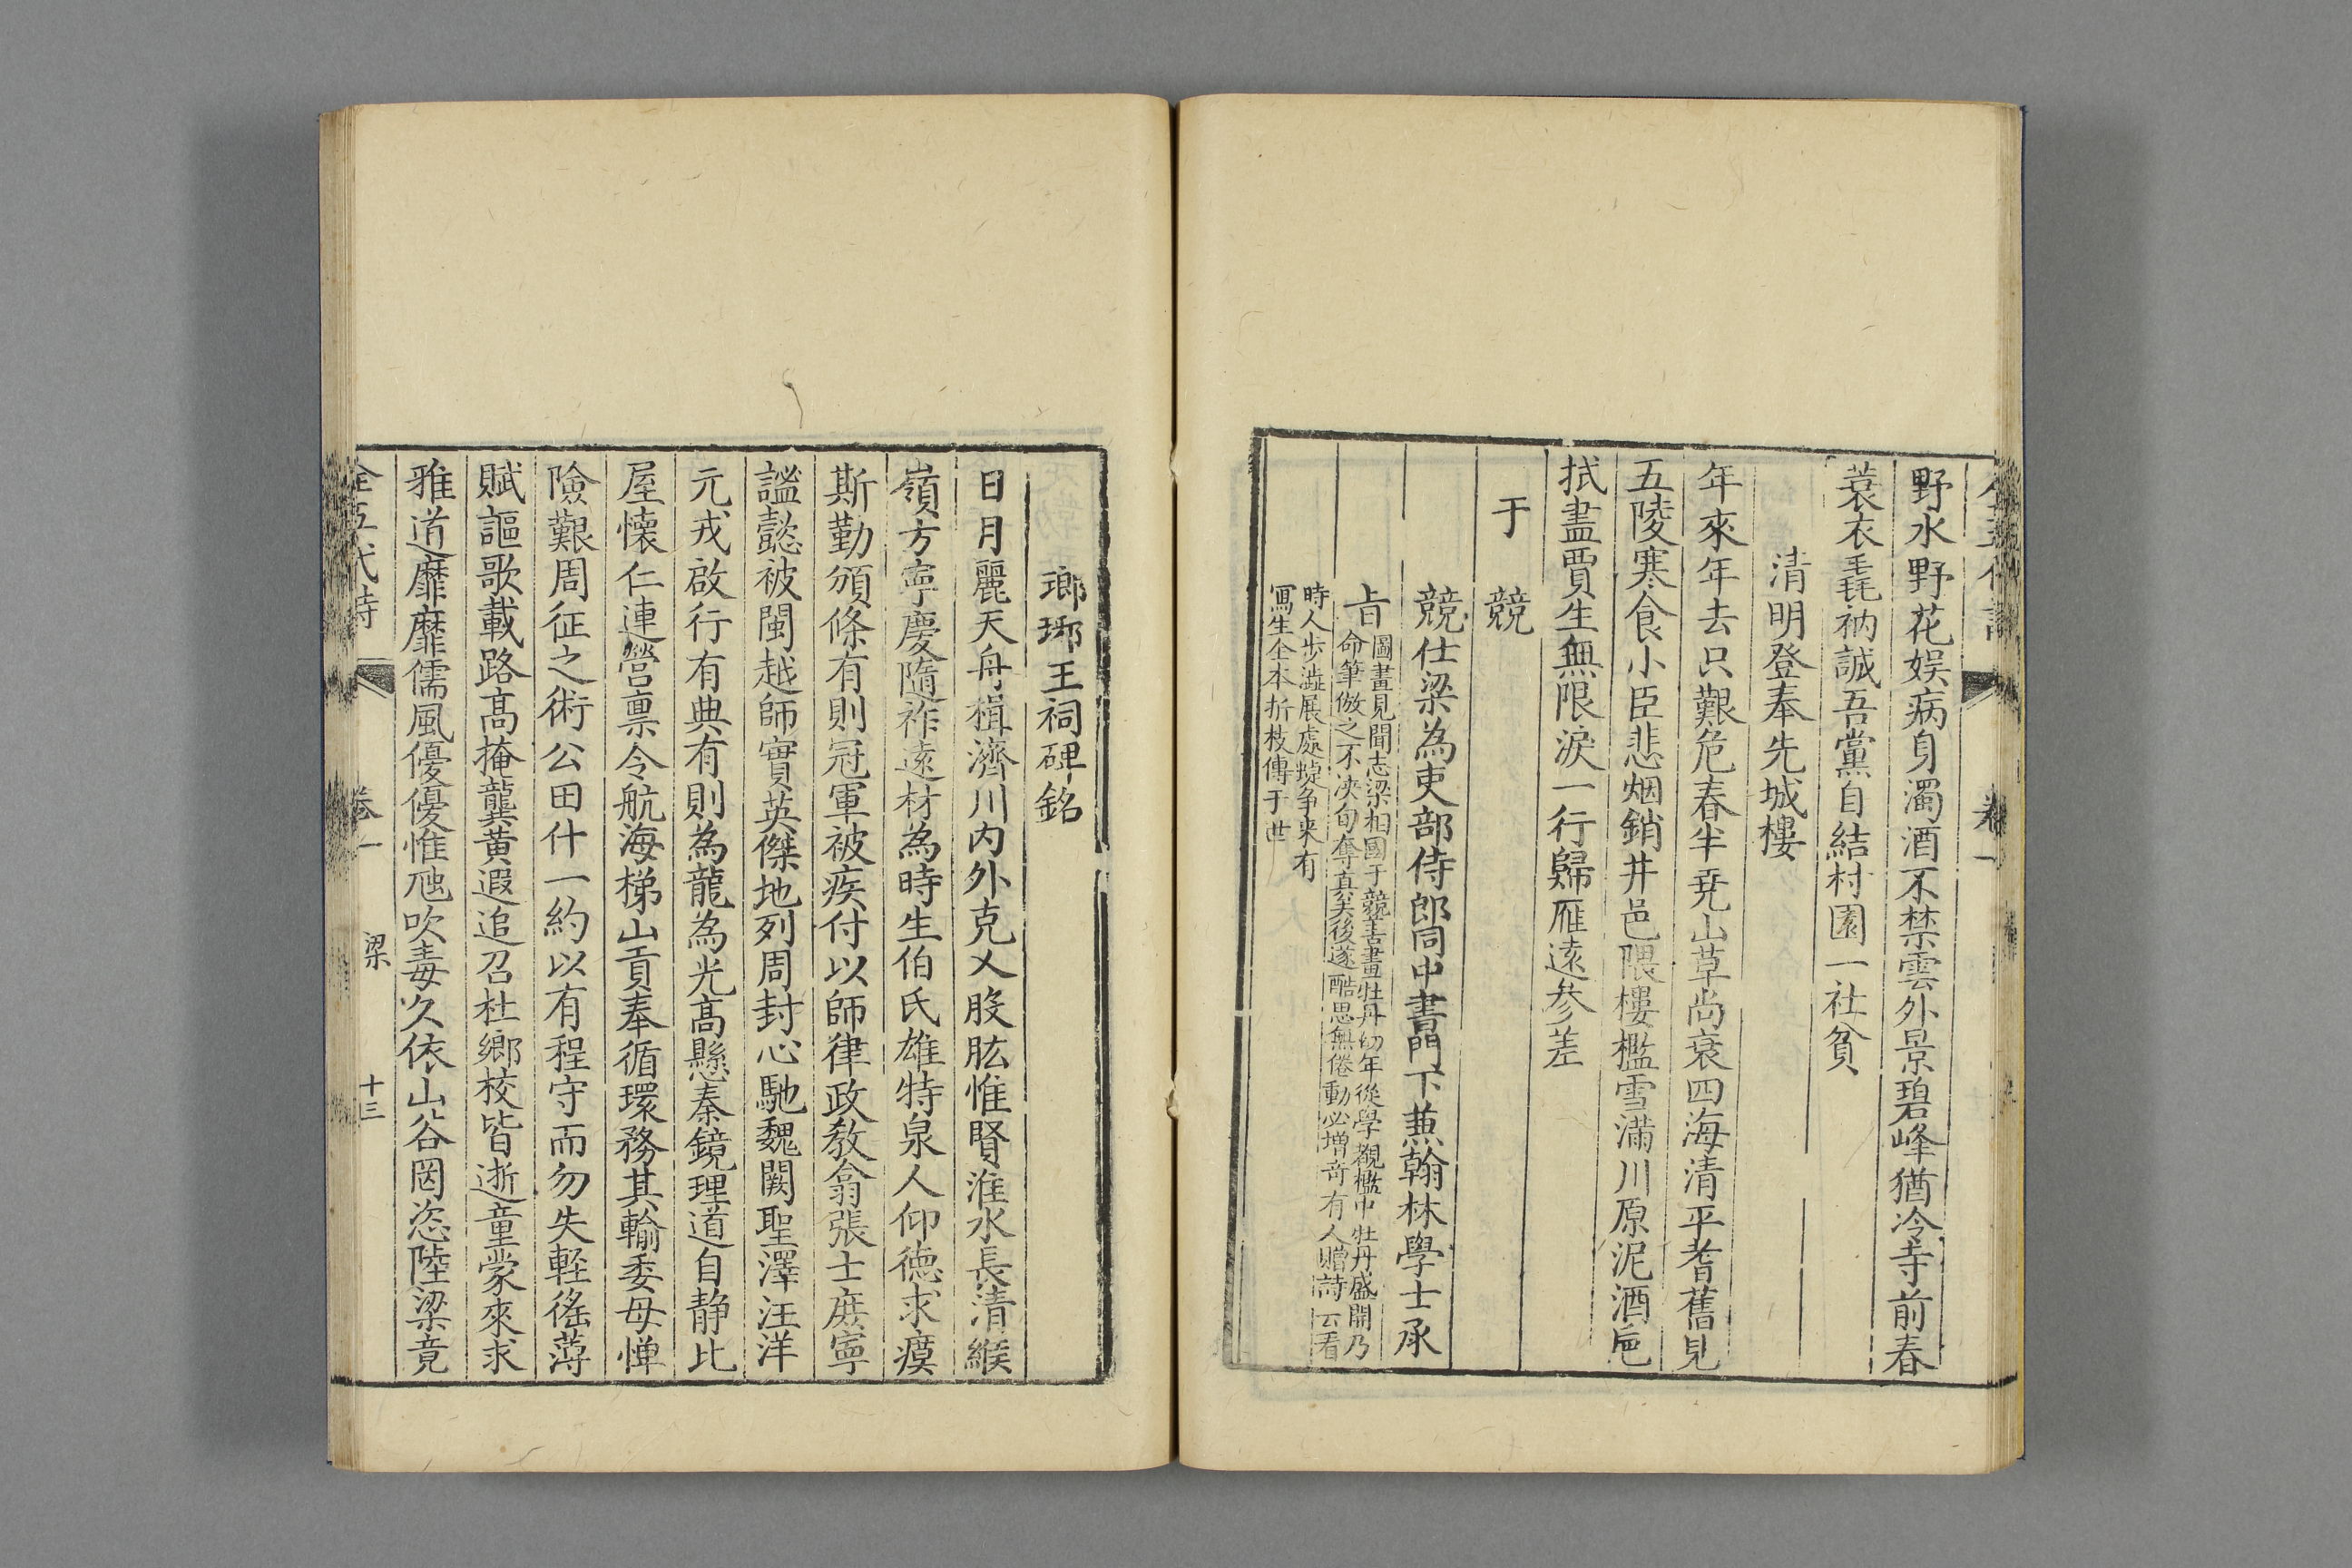 野水野花娱病身濁酒不禁雲外景碧峰猶冷寺前春
蓑衣毳衲誠吾黨自結村園一社貧
清明登奉先城樓
年來年去只艱危春半堯山草尚衰四海清平耆舊見
五陵寒食小臣悲烟銷井邑隈樓檻雪滿川原泥酒巵
拭盡賈生無限淚一行歸雁遠參差
于
競
競仕梁為吏部侍郎同中書門下蕙翰林學士承
旨
圖畫見聞志梁相國于競善畫牡丹幼年從學覩檻中牡丹盛開乃
命筆倣之不浹旬奪真矣後遂酷思無倦動必增奇有人贈詩云看
時人步澁展處蝶争來有
寫生全本折枝傳于世
瑯琊王祠碑銘
日月麗天舟楫濟川内外克乂股肱惟賢淮水長清緱
嶺方寧慶隨祚遠材為時生伯氏雄特泉人仰德求瘼
斯勤頒條有則冠軍被疾付以師律政教翕張士庶寧
謐懿被閩越師實英傑地列周封心馳魏闕聖澤汪洋
元戎啟行有典有則為龍為光高懸秦鏡理道自静比
屋懷仁連營禀令航海梯山貢奉循環務其輸委毋憚
險艱周征之術公田什一約以有程守而勿失輕徭薄
賦謳歌載路高掩龔黄遐追召杜鄉校皆逝童蒙來求
雅道靡靡儒風優優惟虺吹毒久依山谷罔恣陸梁竟
全五代詩 卷一 梁 十三